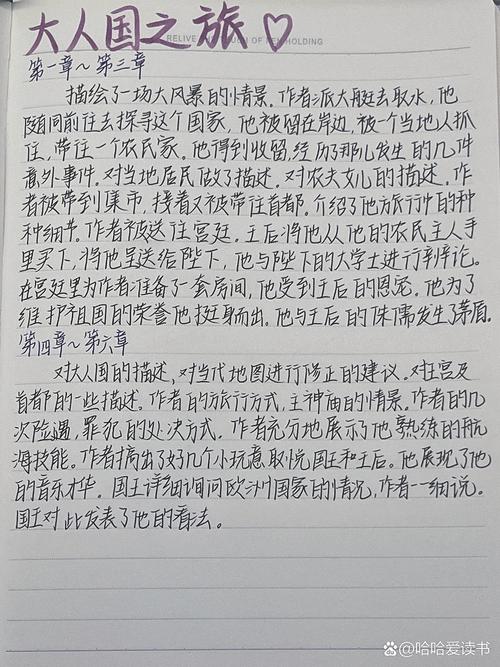 大人国之旅♡
第一章~第三章
描绘了一场大风暴的情景。作者派大艇去取水,他
随同前往去探寻这个国家,他被留在岸边,被一个当地人抓
住,带往一个农民家。他得到收留,经历了那儿发生的几件
意外事件。对当地居民做了描述。对农夫女儿的描述。作
者被带到集市,接着又被带往首都。介绍了他旅行中的种
种细节。作者被送往宫廷。王后将他从他的农民主人手
里买下,将他呈送给陛下,他与陛下的大学士进行辩论。
在宫廷里为作者准备了一套房间,他受到王后的恩宠。他为了
维护祖国的荣誉他挺身而出。他与王后的侏儒发生了矛盾。
第四章~第六章
对大人国的描述,对当代地图进行修正的建议。对王宫及
首都的一些描述。作者的旅行方式,主神庙的情景。作者的几
次险遇,罪犯的处决方式。作者充分地展示了他熟练的航
海技能。作者搞出了好几个小玩意取悦国王和王后。他展现了他
的音乐才华。国王详细询问欧洲国家的情况,作者一一细说。
国王对此发表了他的看法。
@哈哈爱读书